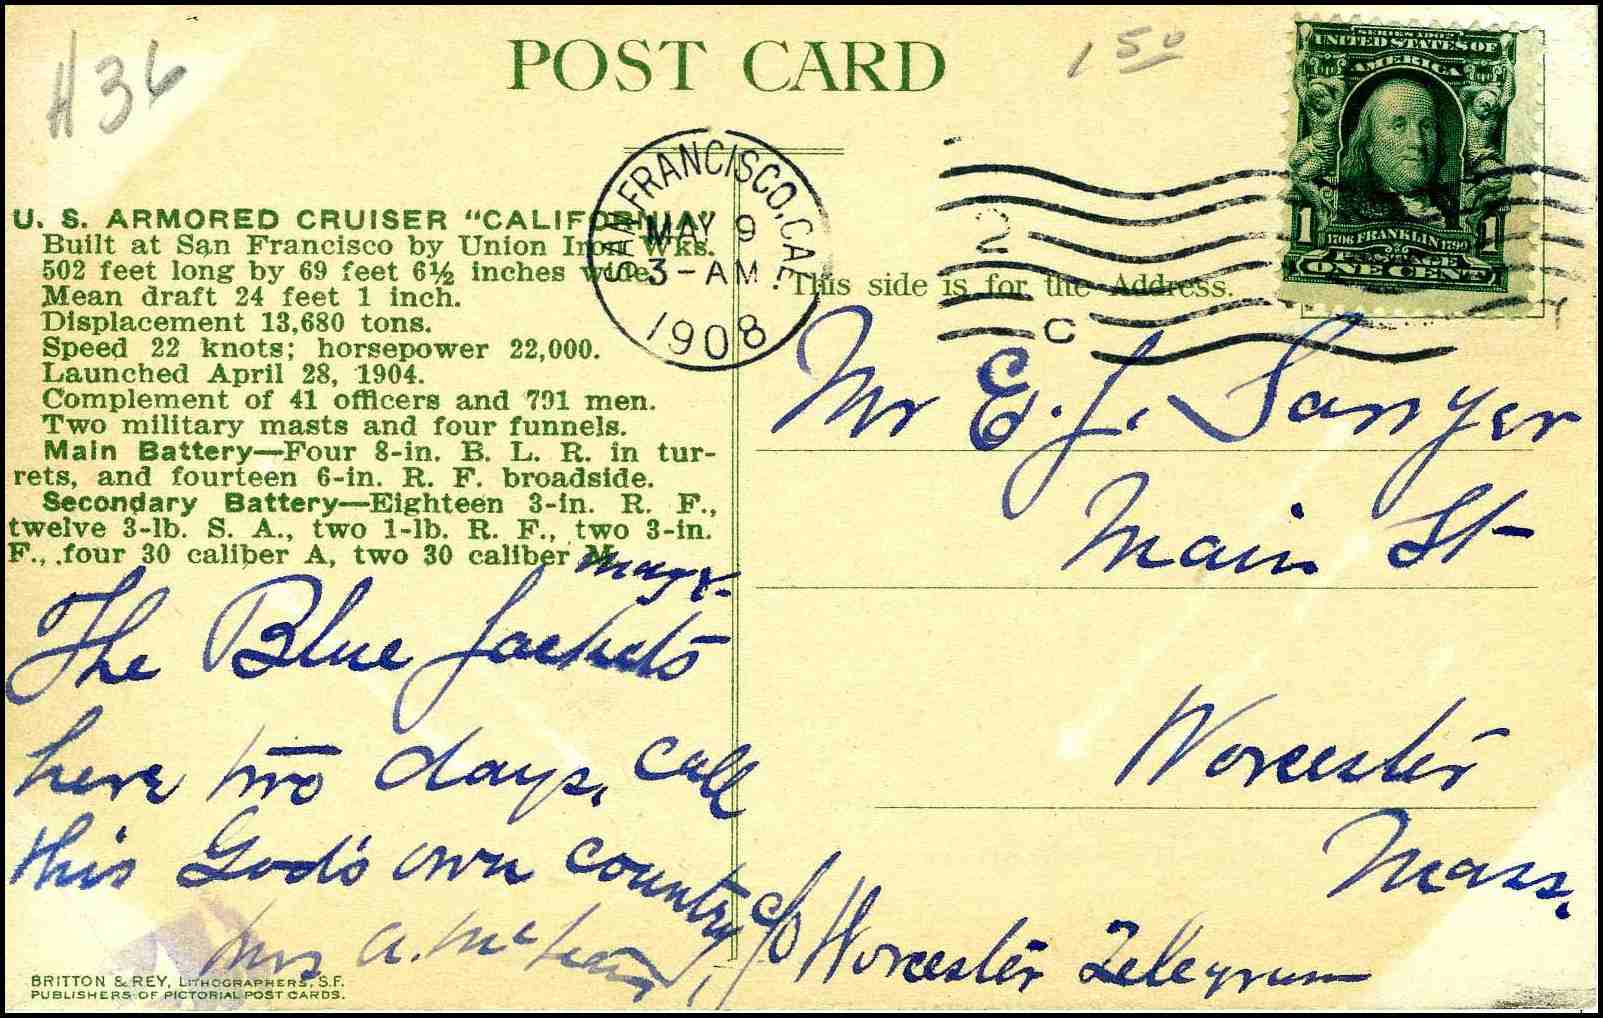 #36
POST CARD
1 50
SERIES 1902
UNITED STATES OF
AMERICA
1 1706 FRANKLIN 1790 1
POSTAGE
ONE CENT
SAN FRANCISCO, CAL.
MAY 9
3-AM.
1908
2
C
U. S. ARMORED CRUISER "CALIFORNIA"
Built at San Francisco by Union Iron Wks.
502 feet long by 69 feet 6½ inches wide.
Mean draft 24 feet 1 inch.
Displacement 13,680 tons.
Speed 22 knots; horsepower 22,000.
Launched April 28, 1904.
Complement of 41 officers and 791 men.
Two military masts and four funnels.
Main Battery—Four 8-in. B. L. R. in tur-
rets, and fourteen 6-in. R. F. broadside.
Secondary Battery—Eighteen 3-in. R. F.,
twelve 3-lb. S. A., two 1-lb. R. F., two 3-in.
F., four 30 caliber A, two 30 caliber M.
The Blue Jackets
here two days, call
this God's own country
Mrs A.
BRITTON & REY, LITHOGRAPHERS, S.F.
PUBLISHERS OF PICTORIAL POST CARDS.
This side is for the Address.
Mr E. J. Sawyer
Main St
Worcester
Mass.
c/o Worcester Telegram